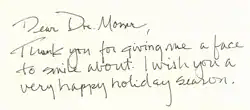 Dear Dr. Moner,
Thank you for giving me a face
to smile about. I wish you a
very happy holiday season.